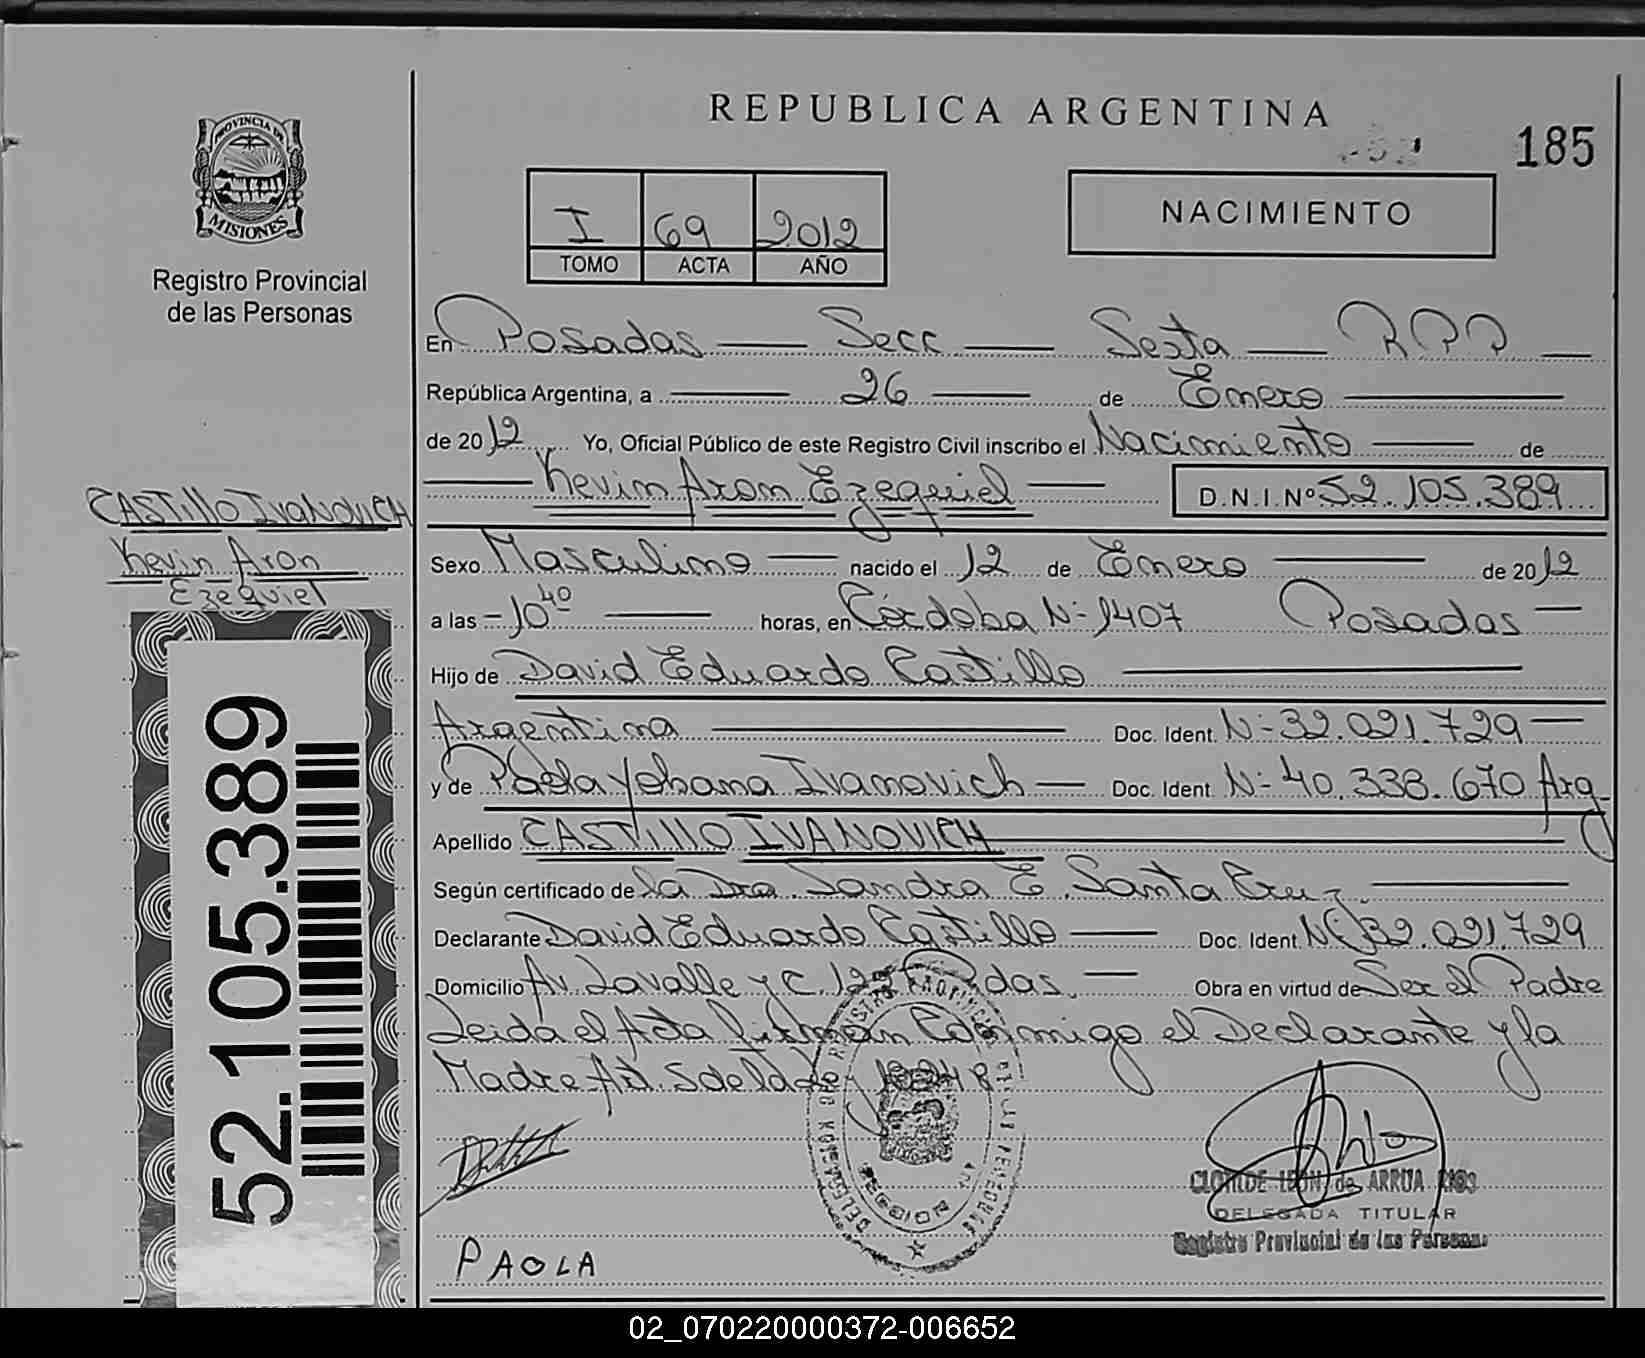 REPUBLICA ARGENTINA
185
PROVINCIA DE
MISIONES
Registro Provincial
de las Personas
I 69 2012
TOMO ACTA AÑO
NACIMIENTO
En Posadas — Secc — Sexta — RPP —
República Argentina, a — 26 — de Enero —
de 2012 Yo, Oficial Público de este Registro Civil inscribo el Nacimiento — de
— Kevin Aron Ezequiel — D.N.I.Nº 52.105.389
CASTILLO IVANOVICH
Kevin Aron
Ezequiel
Sexo Masculino — nacido el 12 de Enero — de 2012
a las - 10 40 — horas, en Córdoba Nº 1407 Posadas —
Hijo de David Eduardo Castillo —
Argentina — Doc. Ident. Nº 32.021.729 —
y de Paola Yohana Ivanovich — Doc. Ident. Nº 40.338.670 Arg
Apellido CASTILLO IVANOVICH
Según certificado de la Dra. Sandra E. Santa Cruz —
Declarante David Eduardo Castillo — Doc. Ident. Nº 32.021.729
Domicilio Av. Lavalle y C. Pdas. — Obra en virtud de Ser el Padre
Leida el Acta firman Conmigo el Declarante y la
Madre Art.
52.105.389
CLOTILDE LEON de ARRUA RIOS
DELEGADA TITULAR
Registro Provincial de las Personas
PAOLA
02_070220000372-006652